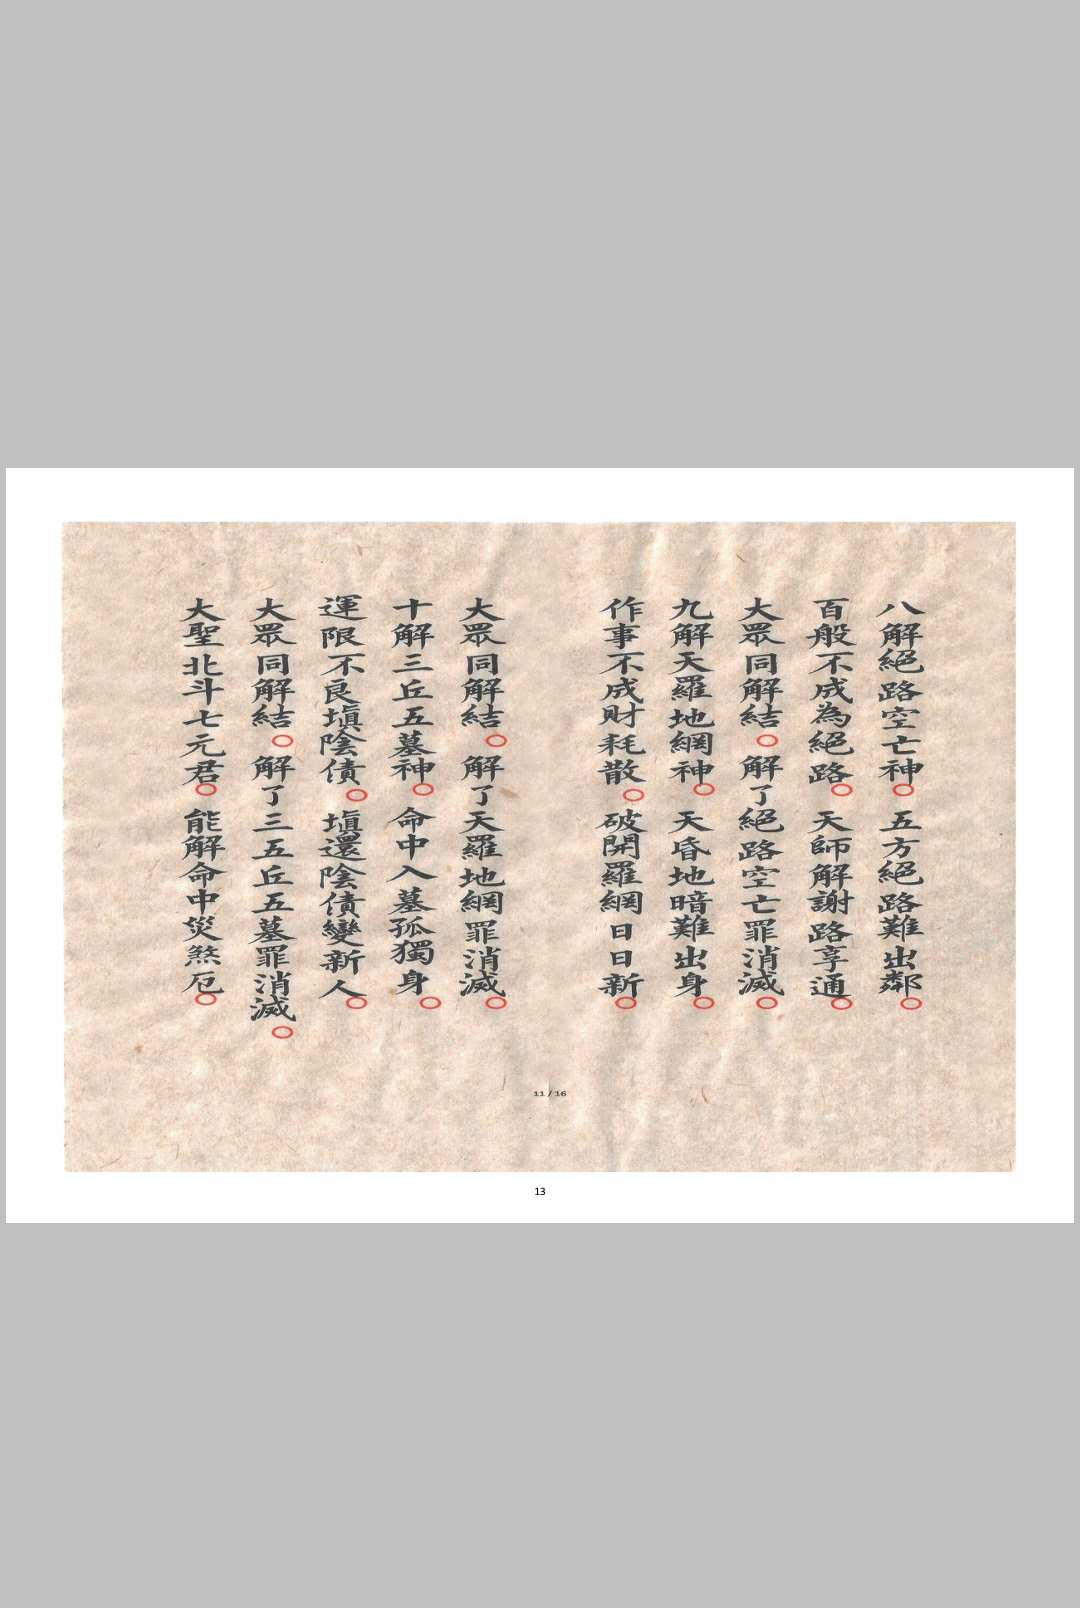 八解絕路空亡神○五方絕路難出鄰○
百般不成為絕路○天師解謝路享通○
大眾同解結○解了絕路空亡罪消滅○
九解天羅地網神○天昏地暗難出身○
作事不成財耗散○破開羅網日日新○
大眾同解結○解了天羅地網罪消滅○
十解三丘五墓神○命中入墓孤獨身○
運限不良填陰債○填還陰債變新人○
大眾同解結○解了三五丘五墓罪消滅○
大聖北斗七元君○能解命中災煞厄○
11 / 16
13